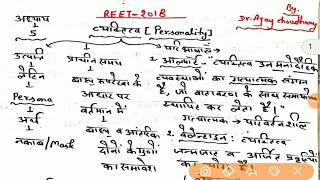 REET-2018
By
Dr. Ajay choudhary
अध्याय
5
व्यक्तित्व [Personality]
उत्पत्ति
लैटिन
Persona
अर्थ
नकाब/Mask
प्राचीन समय
बाह्य रूपरेखा के
आधार पर
वर्तमान में
बाह्य व आंतरिक
दोनों के गुणों
का समावेश
परिभाषाएं
1. आलपोर्ट - "व्यक्तित्व उन मनोदैहिक
व्यवस्थाओं का गत्यात्मक संगठन
है, जो वातावरण के साथ समायोजन
स्थापित कर लेता है।"
गत्यात्मक - परिवर्तनशील
2. वैलेन्टाइन : व्यक्तित्व
जन्मजात व अर्जित प्रवृत्तियों
का योग है
1